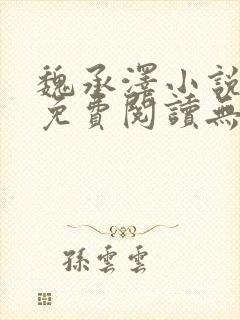 魏承澤小說
免費閱讀無
孫雲雲